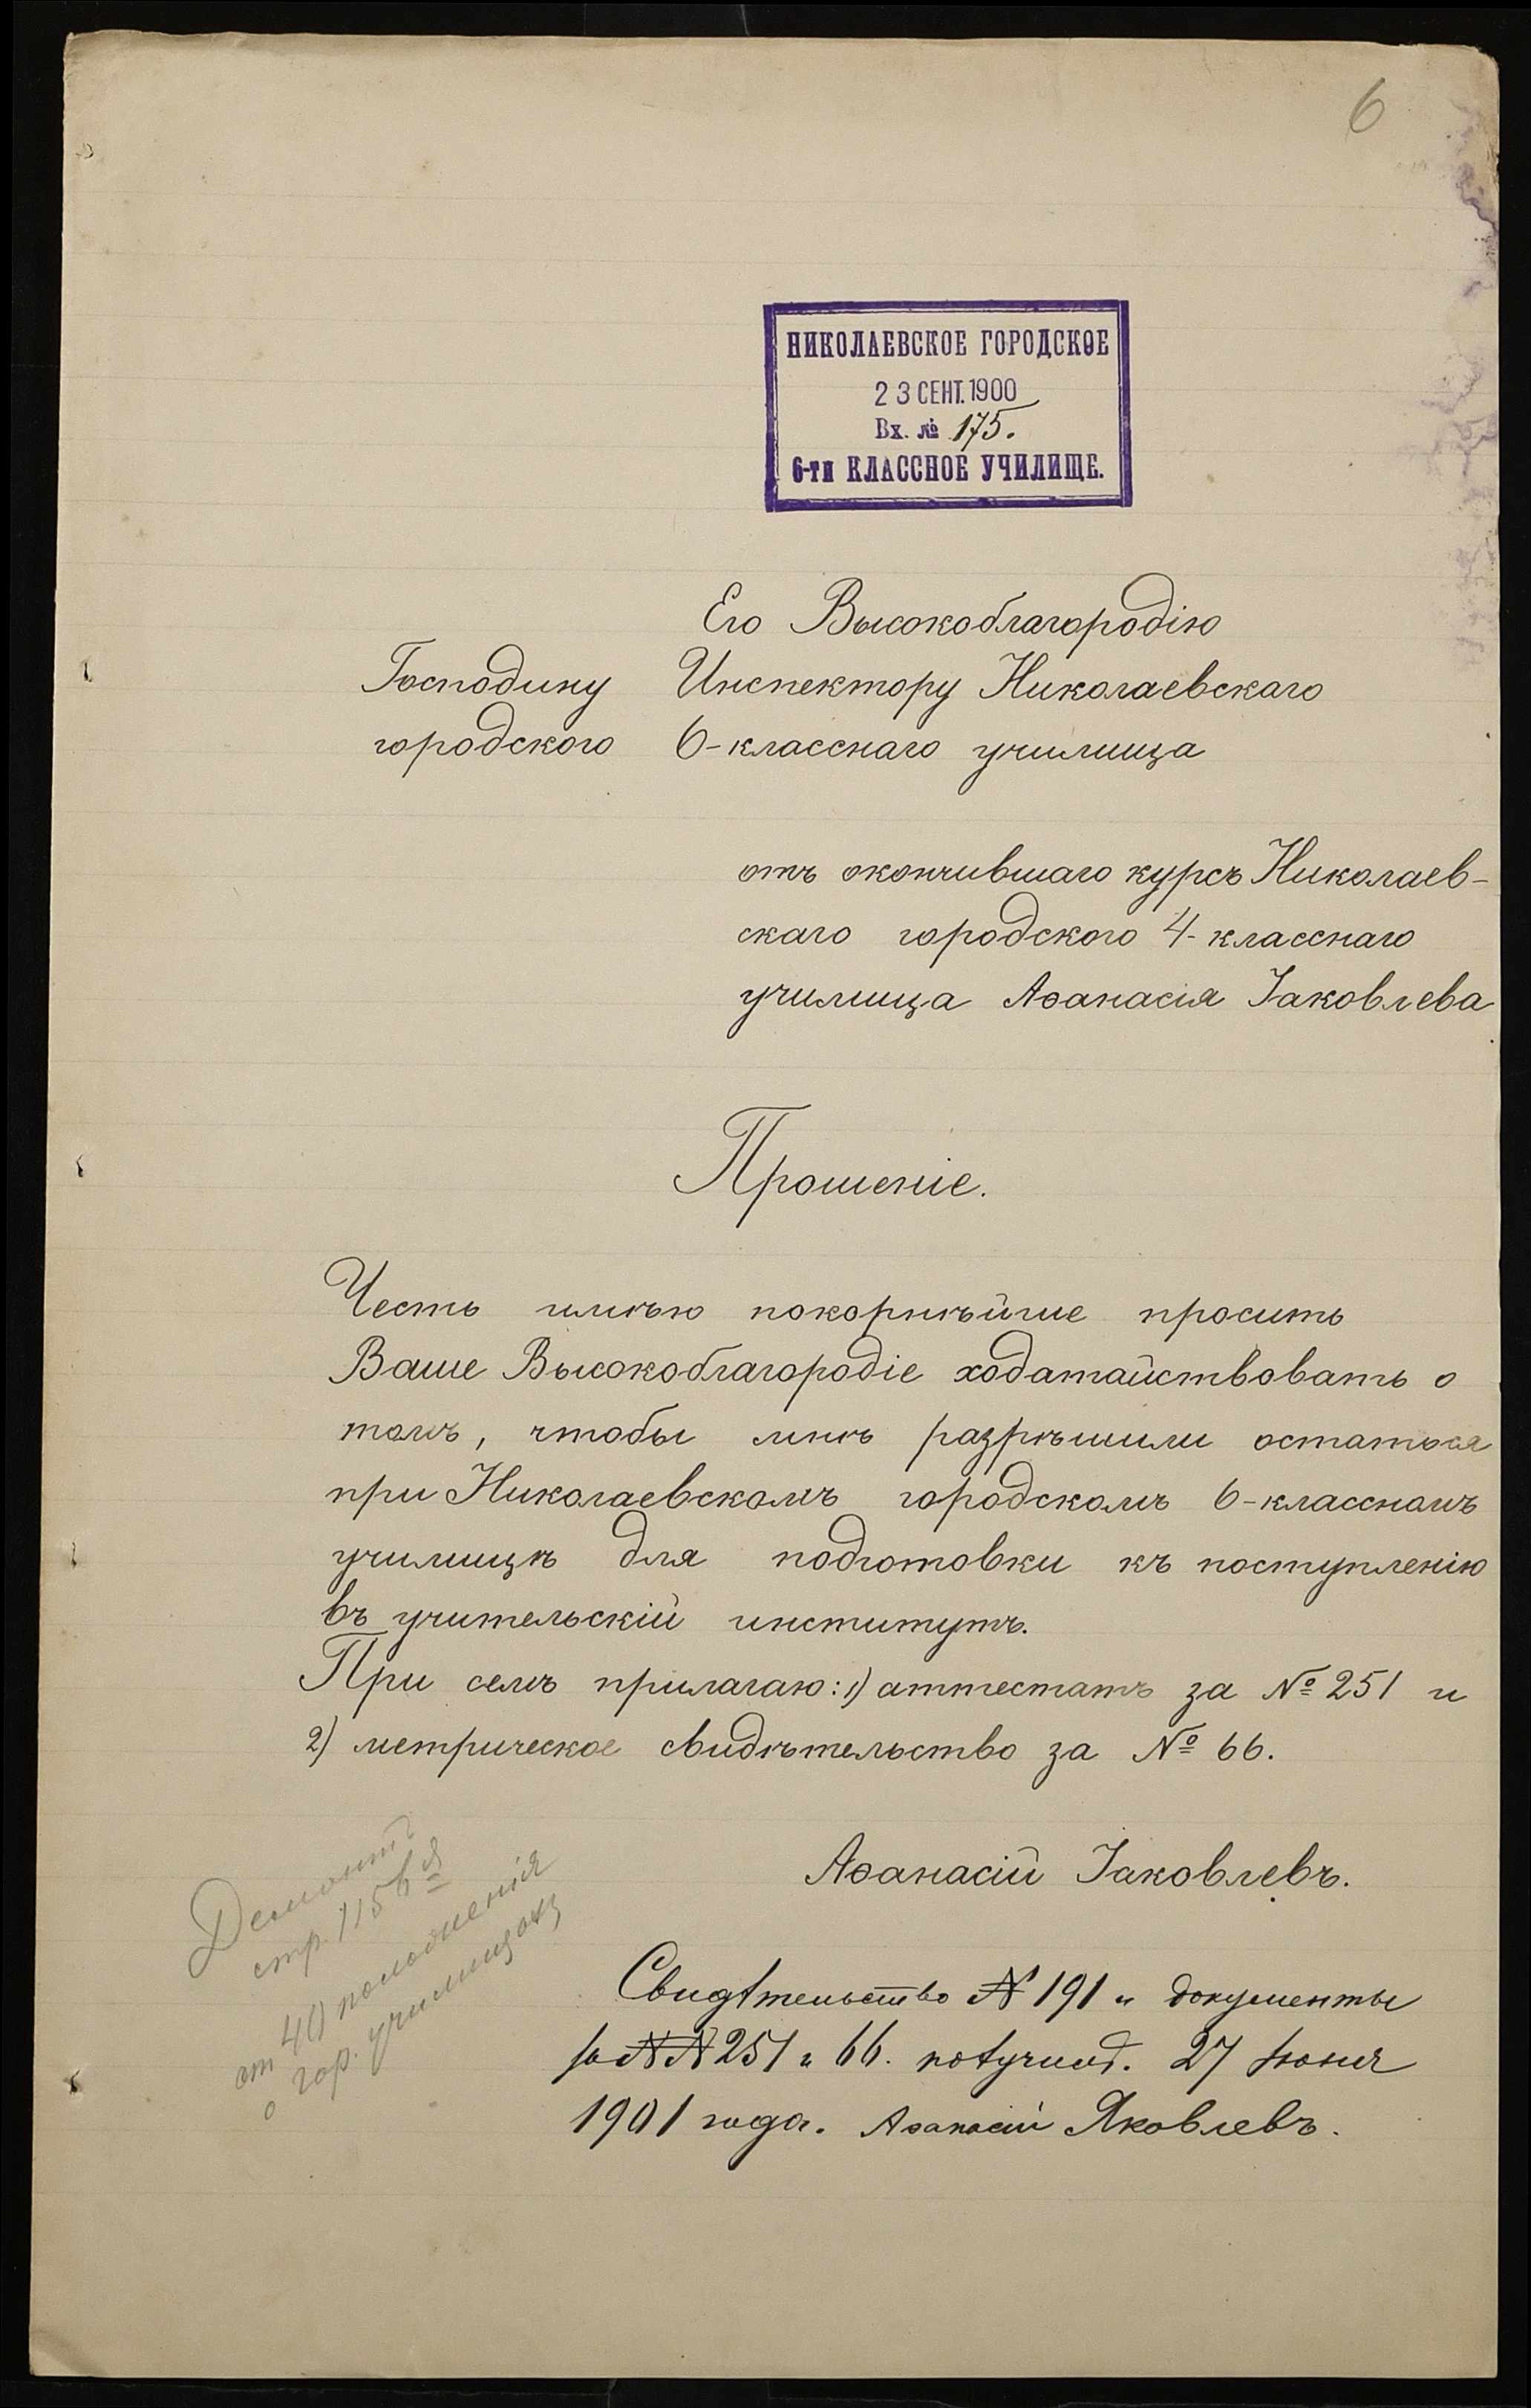 6
НИКОЛАЕВСКОЕ ГОРОДСКОЕ
23 СЕНТ. 1900
Вх. № 175.
6-ти КЛАССНОЕ УЧИЛИЩЕ.
Его Высокоблагородію
Господину Инспектору Николаевскаго
городского 6-класснаго училища
отъ окончившаго курсъ Николаев-
скаго городского 4-класснаго
училища Аѳанасія Іаковлева
Прошеніе.
Честь имѣю покорнѣйше просить
Ваше Высокоблагородіе ходатайствовать о
томъ, чтобы мнѣ разрѣшили остаться
при Николаевскомъ городскомъ 6-классномъ
училищѣ для подготовки къ поступленію
въ учительскій институтъ.
При семъ прилагаю: 1) аттестатъ за № 251 и
2) метрическое свидѣтельство за № 66.
Аѳанасій Іаковлевъ.
стр. 115
от 40 положенія
о гор. училищахъ
Свидѣтельство № 191 и документы
за №№ 251 и 66. получилъ. 27 Іюня
1901 года. Аѳанасій Яковлевъ.